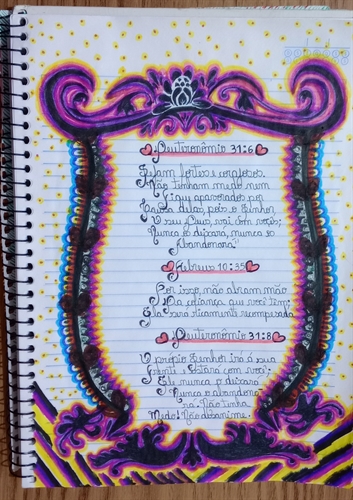 Deuteronômio 31:6
Sejam fortes e corajosos.
Não tenham medo nem
fiquem apavorados por
causa delas, pois o Senhor
o seu Deus, vai com vocês;
Nunca o deixará, nunca o
Abandonará"
Hebreus 10:35
Por isso, não abram mão
Da confiança que vocês têm;
Ela será ricamente recompensada
Deuteronômio 31:8
O próprio Senhor irá à sua
frente e Estará com você;
Ele nunca o deixará
Nunca o abandona
rá. Não tenha
Medo! Não desanime.